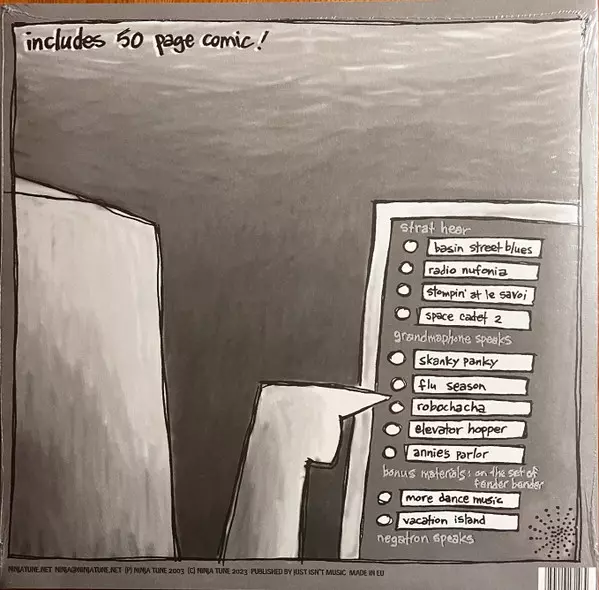 includes 50 page comic!
strat hear
basin street blues
radio nufonia
stompin' at le savoi
space cadet 2
grandmaphone speaks
skanky panky
flu season
robochacha
elevator hopper
annie's parlor
bonus materials: on the set of
fender bender
more dance music
vacation island
negatron speaks
NINJATUNE.NET NINJA@NINJATUNE.NET (P) NINJA TUNE 2003 (C) NINJA TUNE 2023 PUBLISHED BY JUST ISN'T MUSIC MADE IN EU